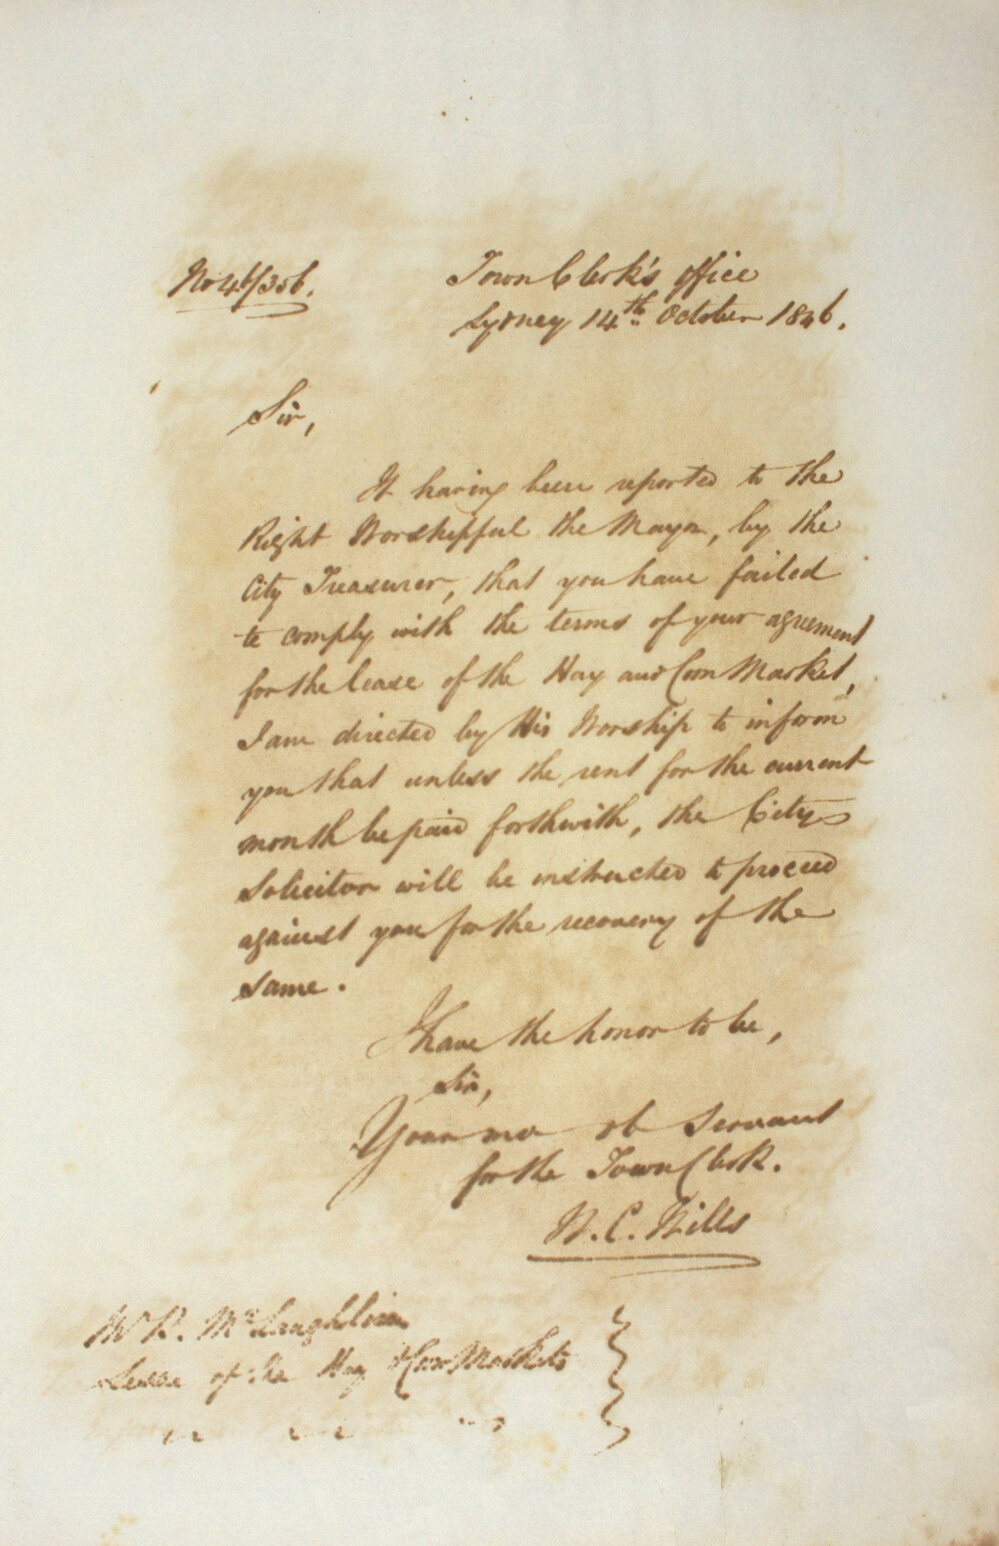 No 46/306.
Town Clerk's Office
Sydney 14th October 1846.
Sir,
It having been reported to the
Right Worshipful the Mayor, by the
City Treasurer, that you have failed
to comply with the terms of your agreement
for the lease of the Hay and Corn Market,
I am directed by His Worship to inform
you that unless the rent for the current
month be paid forthwith, the City
Solicitor will be instructed to proceed
against you for the recovery of the
same.
I have the honor to be,
Sir,
Your mo ob Servant
for the Town Clerk.
W. C. Wills
Mr R. McLaughlin
Lessee of the Hay & Corn Markets